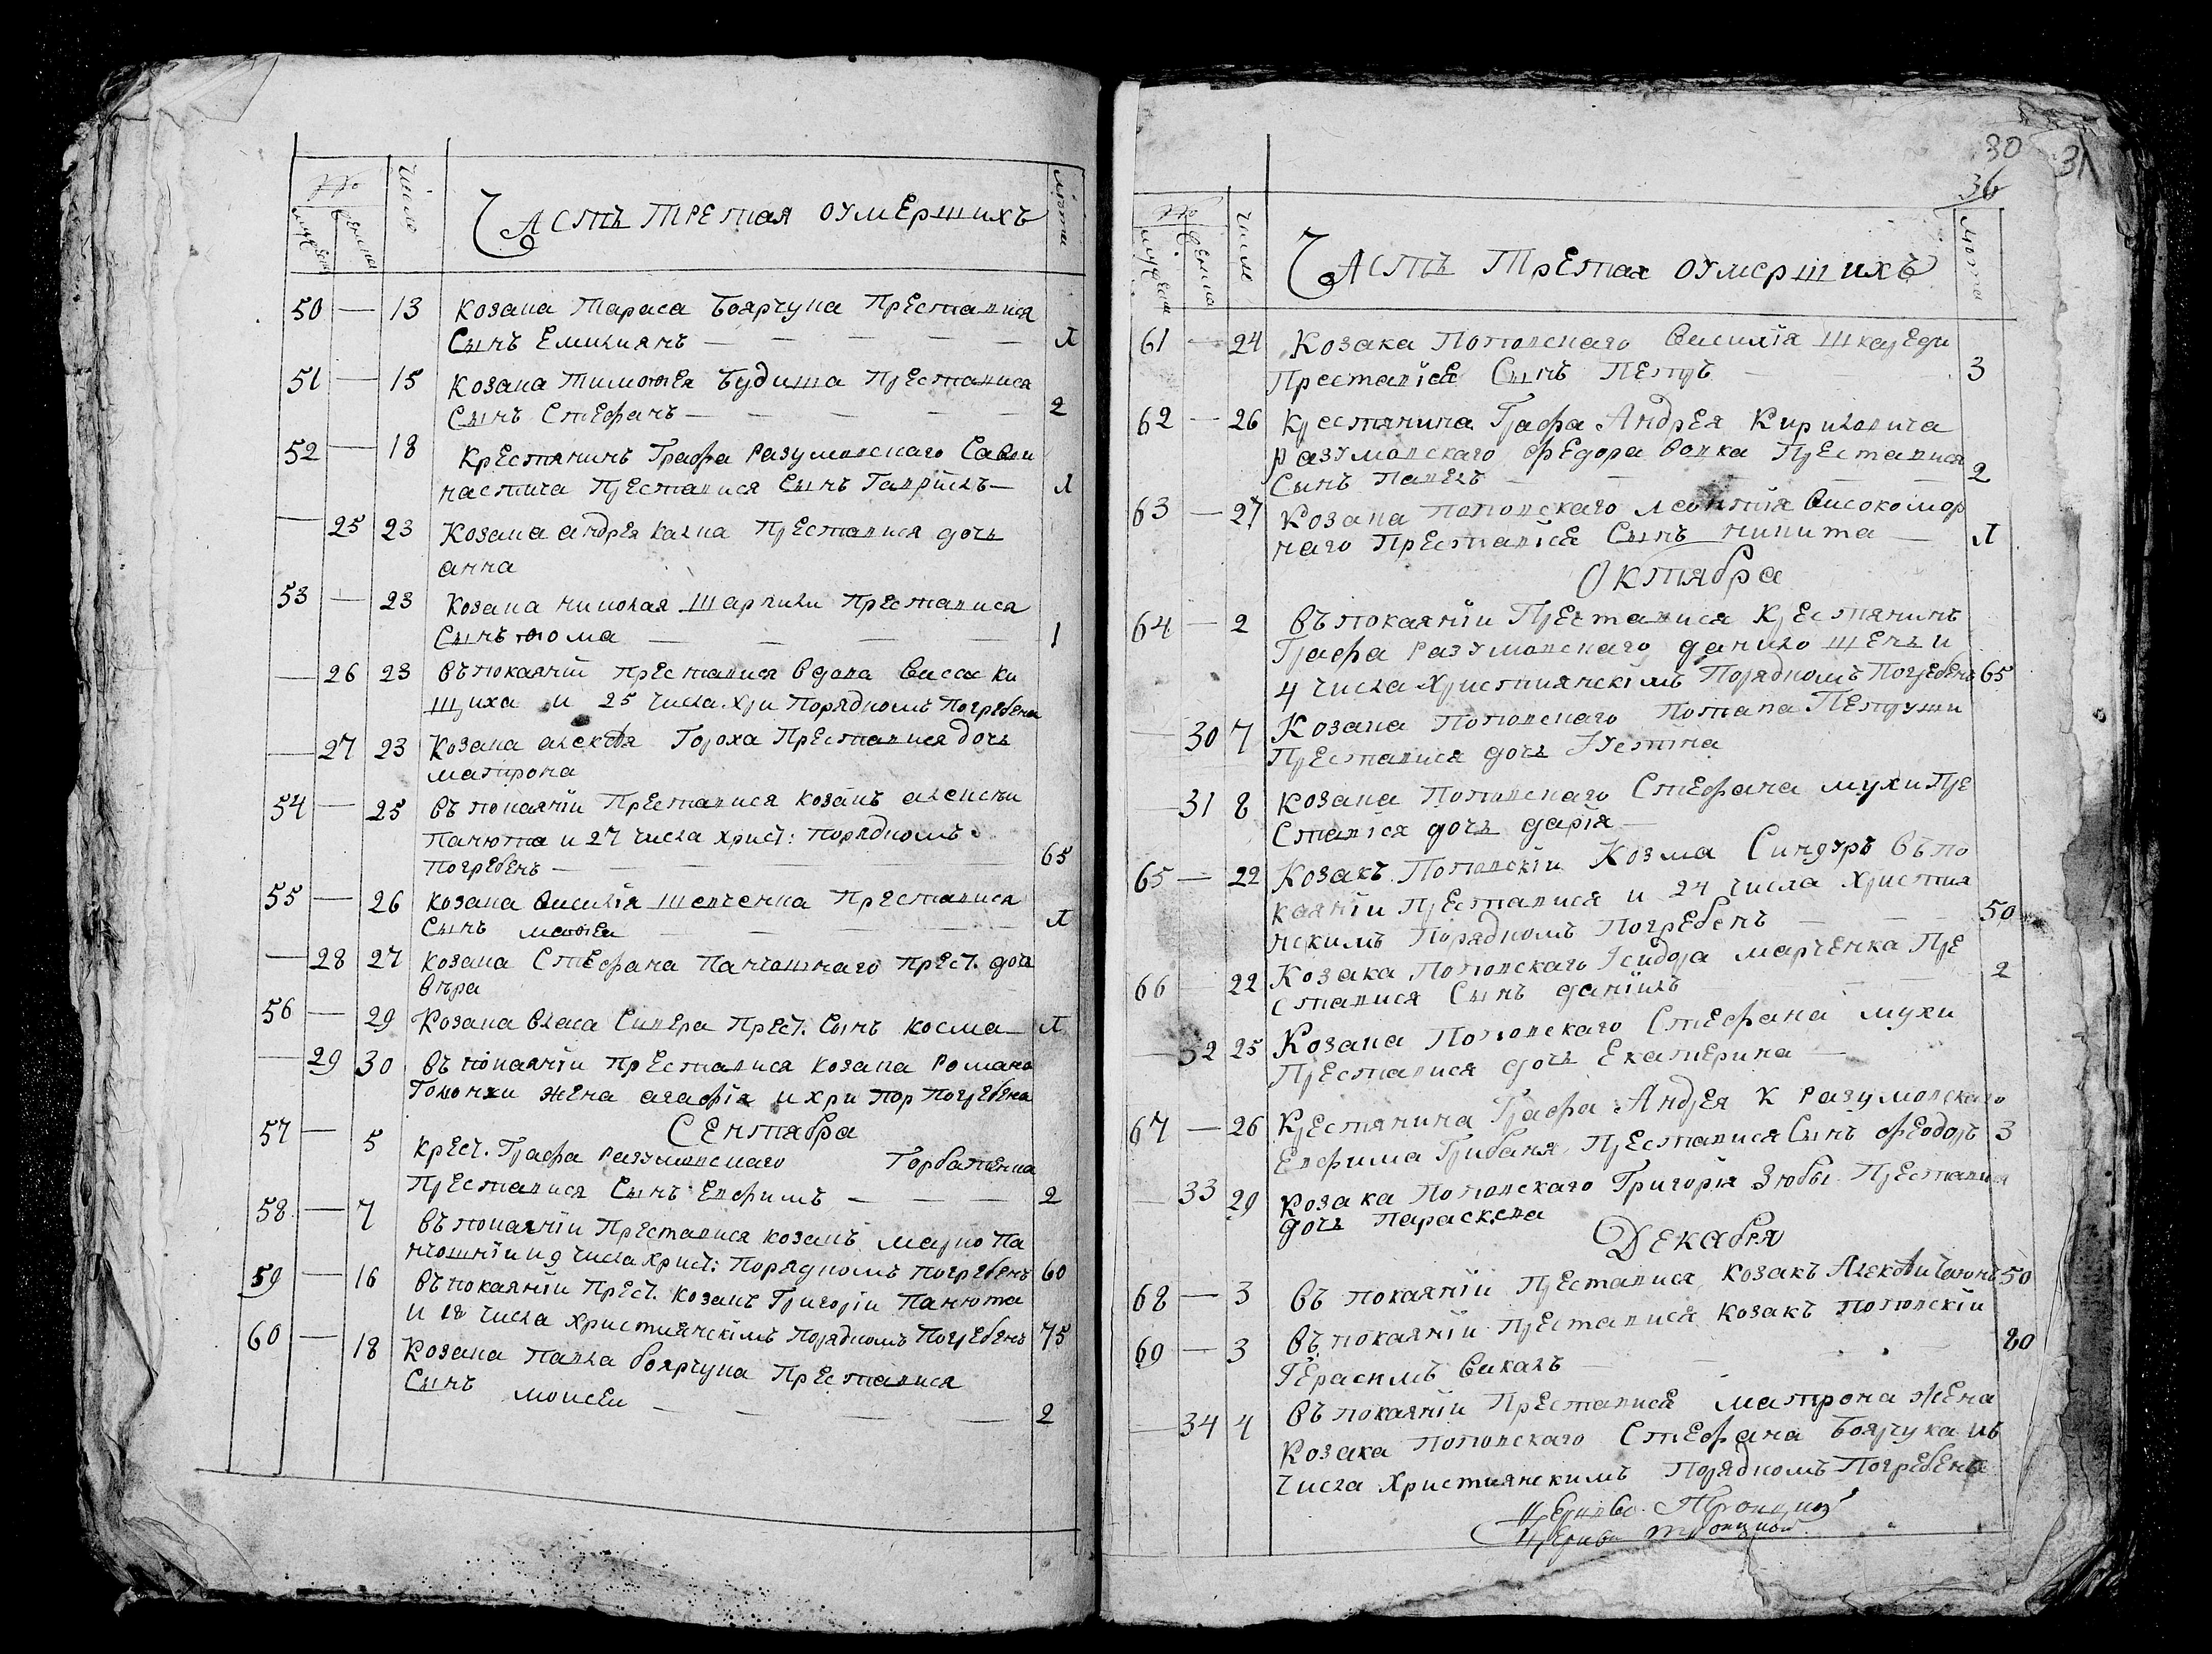 № Число Часть третая оумершихъ лѣта
мужеска женска
50 — 13 Козака Тараса Боярчука Преставися
Сынъ Емилиянъ — — — — — Л
51 — 15 Козака Тимоѳея Будиша Преставися
Сынъ Стефанъ — — — — — 2
52 — 18 Крестянинъ Графа Разумовскаго Савви
Преставися Сынъ Гавріилъ — Л
— 25 23 Козака андрея Преставися дочь
анна
53 — 23 Козака николая Шарпили Преставися
Сынъ ѳома — — — — 1
— 26 23 въ покаяніи преставися вдова Васса Ки
щиха и 25 числа хри Порядкомъ Погребена
— 27 23 Козака алексѣя Гороха Преставися дочь
матрона
54 — 25 въ покаяніи Преставися козакъ алексѣи
Панюта и 27 числа хрисТ: порядкомъ
Погребенъ — — — 65
55 — 26 козака Василія Шевченка Преставися
Сынъ матѳеи — — — — Л
— 28 27 козака Стефана Панчошнаго ПресТ. дочь
вѣра
56 — 29 Козака власа Сивера ПресТ. Сынъ косма — Л
— 29 30 въ покаяніи преставися козака Романа
жена агафія и хри пор Погребена
Сентября
57 — 5 КресТ. Графа Разумовскаго Горбатенка
Преставися Сынъ Евфимъ — — — 2
58 — 7 въ покаяніи Преставися козакъ марко Па
нчошніи и 9 числа ХрисТ: Порядкомъ погребенъ 60
59 — 16 въ покаяніи ПресТ. козакъ Григоріи Панюта
и 18 числа християнскімъ порядкомъ Погребенъ 75
60 — 18 Козака Павла боярчука Преставися
Сынъ моисеи — — — — 2
30
31
36
№ Число Часть Третая оумершихъ лѣта
мужеска женска
61 — 24 Козака Поповскаго Василія Шкареди
Преставісѧ Сынъ Петръ — 3
62 — 26 Крестянина Графа Андрея Кириловича
разумовскаго Федора вовка Преставися
Сынъ Павелъ — — — — 2
63 — 27 Козака поповскаго леонтія Високомор
наго Преставісѧ Сынъ никита — Л
Октября
64 — 2 въ покаяніи Преставися Крестянинъ
Графа Разумовскаго данило и
4 числа Християнскімъ Порядкомъ Погребенъ 65
— 30 7 Козака Поповскаго Потапа Петруши
Преставися дочь Іустина
— 31 8 козака Поповскаго Стефана мухи Пре
ставіся дочь дарія —
65 — 22 Козакъ Поповскіи Козма Синдуръ въ по
каяніи Преставися и 24 числа Христия
нскимъ Порядкомъ Погребенъ — — — 50
66 — 22 Козака Поповскаго Ісидора марченка Пре
ставися Сынъ даніилъ — 2
— 32 25 Козака Поповскаго Стефана мухи
Преставися дочь Екатерина —
67 — 26 Крестянина Графа Андрея К Разумовскаго
Евфима Грибаня Преставися Сынъ Феодоръ 3
33 29 козака Поповскаго Григорія Зюбы Преставися
дочь Параскева
Декабря
68 — 3 въ покаяніи Преставися козакъ Алексѣи 50
69 — 3 въ покаяніи Преставися козакъ поповскіи
Герасимъ Викалъ — — — 80
— 34 4 въ покаяніи Преставися матрона жена
Козака поповскаго Стефана Боярчука
числа Християнскимъ Порядкомъ Погребена